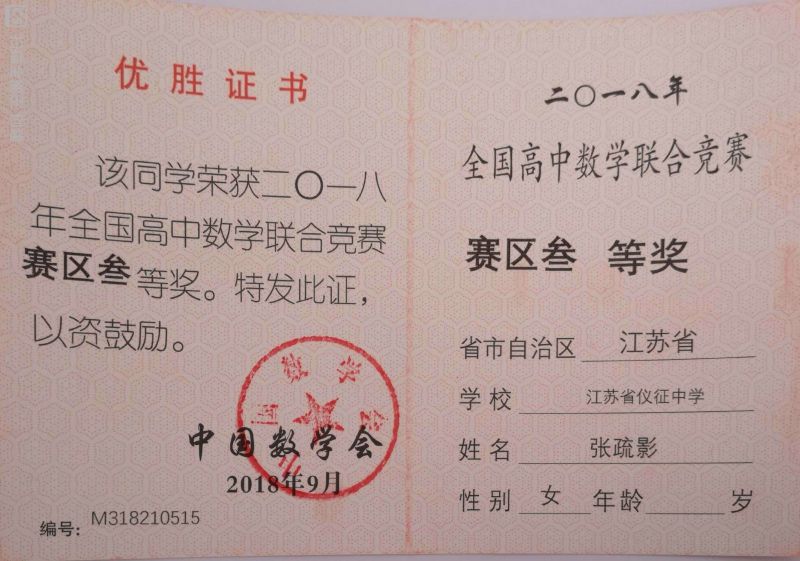 优胜证书
该同学荣获二〇一八
年全国高中数学联合竞赛
赛区叁等奖。特发此证，
以资鼓励。
中国数学会
中国数学会
2018年9月
编号：M318210515
二〇一八年
全国高中数学联合竞赛
赛区叁 等奖
省市自治区 江苏省
学校 江苏省仪征中学
姓名 张疏影
性别 女 年龄 岁